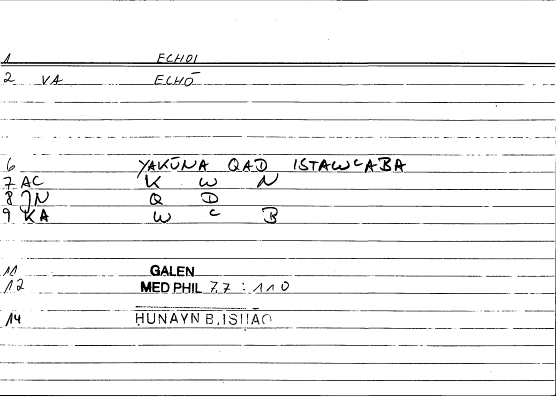 1 ECHOI
2 VA ECHŌ
6 YAKŪNA QAD ISTAWCABA
7 AC K W N
8 JN Q D
9 KA W C B
11 GALEN
12 MED PHIL 77 : 110
14 HUNAYN B.ISHAQ